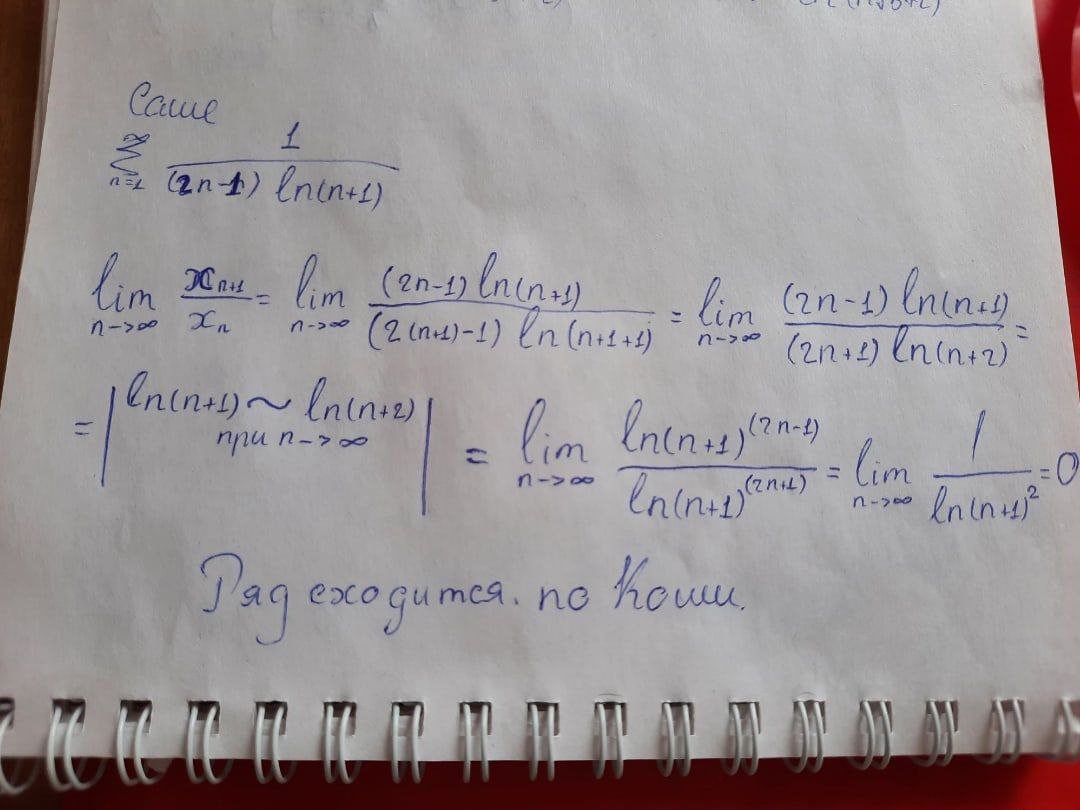 Саше
∞
∑ 1 / ((2n-1) ln(n+1))
n=1
lim n->∞ x_{n+1} / x_n = lim n->∞ (2n-1) ln(n+1) / ((2(n+1)-1) ln(n+1+1)) = lim n->∞ (2n-1) ln(n+1) / ((2n+1) ln(n+2)) =
= | ln(n+1) ~ ln(n+2) при n->∞ | = lim n->∞ ln(n+1)^(2n-1) / ln(n+1)^(2n+1) = lim n->∞ 1 / ln(n+1)^2 = 0
Ряд сходится. по Коши.